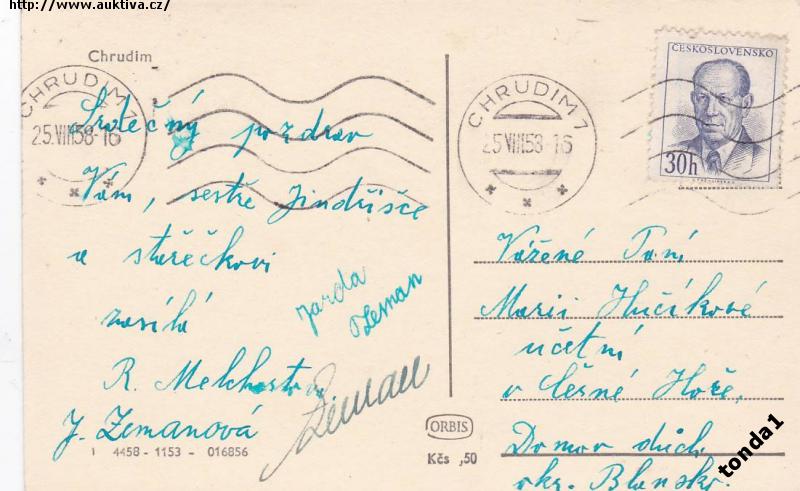 http://www.auktiva.cz/
Chrudim
CHRUDIM 1
25.VIII.58-16
Srdečný pozdrav
Vám, sestře Jindřišce
a stařečkovi
zasílá
R.
J. Zemanová
Jarda
Zeman
Zeman
4458 - 1153 - 016856
ORBIS
Kčs ,50
CHRUDIM 1
25.VIII.58-16
ČESKOSLOVENSKO
30h
Vážené Paní
Marii Hučíkové
účetní
v Černé Hoře,
Domov důch.
okr. Blansko.
tonda1